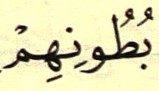 بُطُونِهِمْ